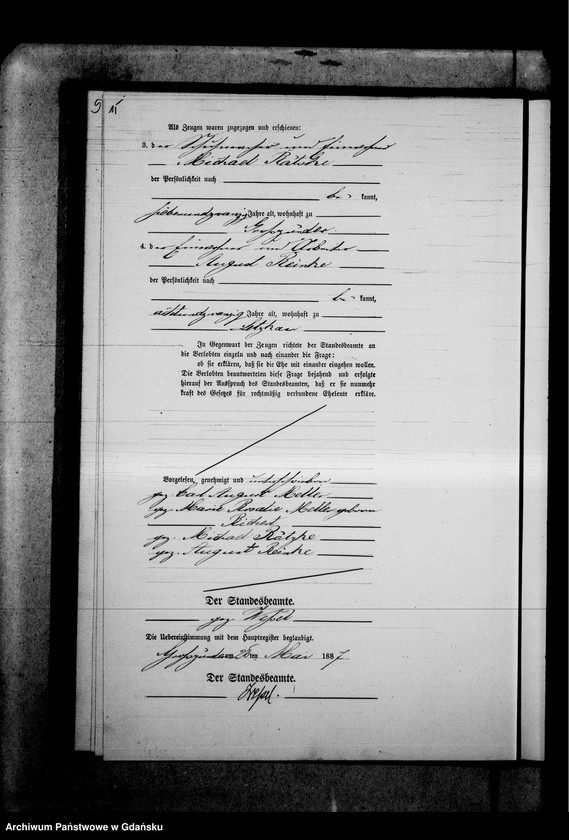 9 11
Als Zeugen waren zugezogen und erschienen:
3. der Schuhmacher und Einwohner
Michael Rätzke
der Persönlichkeit nach
be kannt,
siebenundzwanzig Jahre alt, wohnhaft zu
Großzünder.
4. der Einwohner und Arbeiter
August Reinke
der Persönlichkeit nach
be kannt,
achtundzwanzig Jahre alt, wohnhaft zu
Letzkau
In Gegenwart der Zeugen richtete der Standesbeamte an
die Verlobten einzeln und nach einander die Frage:
ob sie erklären, daß sie die Ehe mit einander eingehen wollen.
Die Verlobten beantworteten diese Frage bejahend und erfolgte
hierauf der Ausspruch des Standesbeamten, daß er sie nunmehr
kraft des Gesetzes für rechtmäßig verbundene Eheleute erkläre.
Vorgelesen, genehmigt und unterschrieben
gez. Carl August Meller
gez. Marie Rosalie Meller geboren
gez. Michael Rätzke
gez. August Reinke
Der Standesbeamte.
gez. Wessel
Die Uebereinstimmung mit dem Hauptregister beglaubigt.
Großzünder am 25ten Mai 1887
Der Standesbeamte.
Wessel.
Archiwum Państwowe w Gdańsku